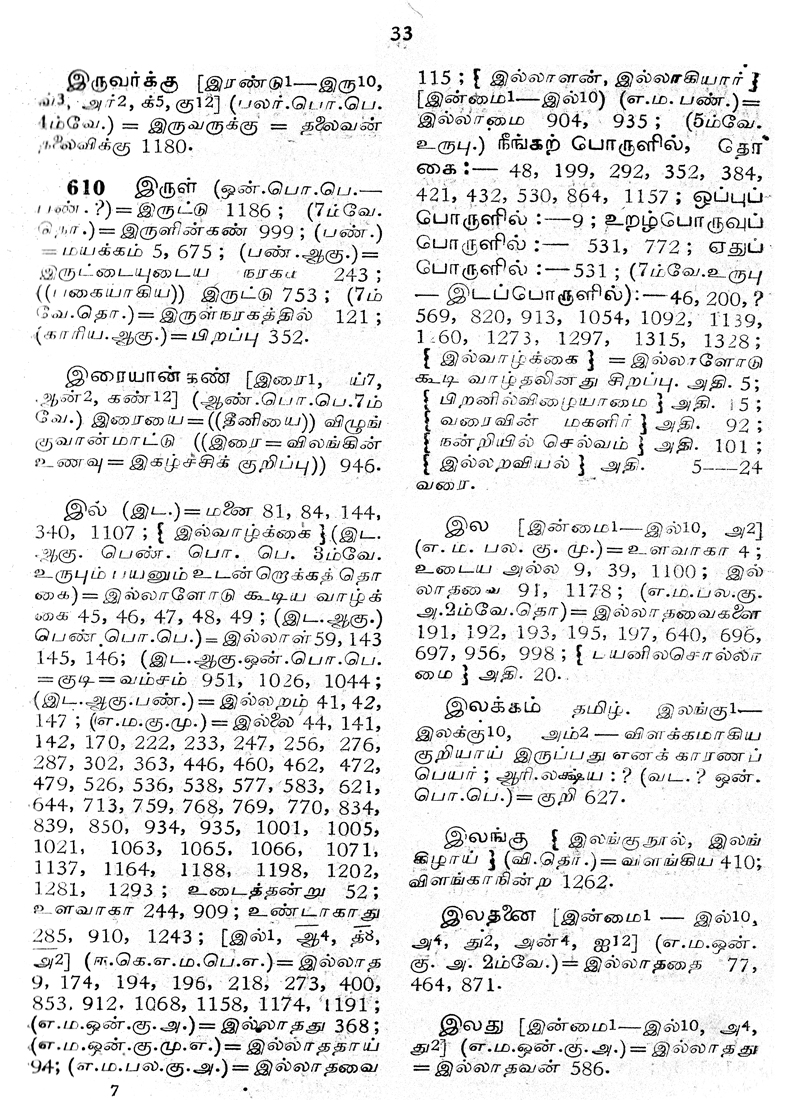 33
இருவர்க்கு [இரண்டு1—இரு10,
வ்3, அர்2, க்5, கு12] (பலர்.பொ.பெ.
4ம்வே.) = இருவருக்கு = தலைவன்
தலைவிக்கு 1180.
610 இருள் (ஒன்.பொ.பெ.—
பண். ?)=இருட்டு 1186 ; (7ம்வே.
தொ.)=இருளின்கண் 999 ; (பண்.)
=மயக்கம் 5, 675 ; (பண்.ஆகு.)=
இருட்டையுடைய நரகம் 243 ;
((பகையாகிய)) இருட்டு 753 ; (7ம்
வே.தொ.)=இருள்நரகத்தில் 121 ;
(காரிய.ஆகு.)=பிறப்பு 352.
இரையான்கண் [இரை1, ய்7,
ஆன்2, கண்12] (ஆண்.பொ.பெ.7ம்
வே.) இரையை=((தீனியை)) விழுங்
குவான்மாட்டு ((இரை=விலங்கின்
உணவு=இகழ்ச்சிக் குறிப்பு)) 946.
இல் (இட.)=மனை 81, 84, 144,
340, 1107 ; { இல்வாழ்க்கை }(இட.
ஆகு. பெண். பொ. பெ. 3ம்வே.
உருபும் பயனும் உடன்றெக்கத் தொ
கை)=இல்லாளோடு கூடிய வாழ்க்
கை 45, 46, 47, 48, 49 ; (இட.ஆகு.)
பெண்.பொ.பெ.)=இல்லாள் 59, 143
145, 146; (இட.ஆகு.ஒன்.பொ.பெ.
=குடி=வம்சம் 951, 1026, 1044;
(இட.ஆகு.பண்.)=இல்லறம் 41, 42,
147 ; (எ.ம.கு.மு.)=இல்லை 44, 141,
142, 170, 222, 233, 247, 256, 276,
287, 302, 363, 446, 460, 462, 472,
479, 526, 536, 538, 577, 583, 621,
644, 713, 759, 768, 769, 770, 834,
839, 850, 934, 935, 1001, 1005,
1021, 1063, 1065, 1066, 1071,
1137, 1164, 1188, 1198, 1202,
1281, 1293 ; உடைத்தன்று 52;
உளவாகா 244, 909 ; உண்டாகாது
285, 910, 1243 ; [இல்1, ஆ4, த்8,
அ2] (ஈ.கெ.எ.ம.பெ.எ.)=இல்லாத
9, 174, 194, 196, 218, 273, 400,
853, 912. 1068, 1158, 1174, 1191 ;
(எ.ம.ஒன்.கு.அ.)=இல்லாதது 368;
(எ.ம.ஒன்.கு.மு.எ.)=இல்லாததாய்
94; (எ.ம.பல.கு.அ.)=இல்லாதவை
115 ; { இல்லாளன், இல்லாகியார் }
[இன்மை1—இல்10) (எ.ம. பண்.)=
இல்லாமை 904, 935 ; (5ம்வே.
உருபு.) நீங்கற் பொருளில், தொ
கை :— 48, 199, 292, 352, 384,
421, 432, 530, 864, 1157 ; ஒப்புப்
பொருளில் :—9 ; உறழ்பொருவுப்
பொருளில் :— 531, 772 ; ஏதுப்
பொருளில் :—531 ; (7ம்வே.உருபு
— இடப்பொருளில்):—46, 200, ?
569, 820, 913, 1054, 1092, 1139,
1260, 1273, 1297, 1315, 1328 ;
{ இல்வாழ்க்கை } =இல்லாளோடு
கூடி வாழ்தலினது சிறப்பு. அதி. 5;
{ பிறனில்விழையாமை } அதி. 15 ;
{ வரைவின் மகளிர் } அதி. 92 ;
{ நன்றியில் செல்வம் } அதி. 101 ;
{ இல்லறவியல் } அதி. 5---24
வரை.
இல [இன்மை1—இல்10, அ2]
(எ. ம. பல. கு. மு.)=உளவாகா 4 ;
உடைய அல்ல 9, 39, 1100 ; இல்
லாதவை 91, 1178 ; (எ.ம.பல.கு.
அ.2ம்வே.தொ)=இல்லாதவைகளை
191, 192, 193, 195, 197, 640, 696,
697, 956, 998 ; { பயனிலசொல்லா
மை } அதி. 20.
இலக்கம் தமிழ். இலங்கு1—
இலக்கு10, அம்2 — விளக்கமாகிய
குறியாய் இருப்பது எனக் காரணப்
பெயர் ; ஆரி.லக்ஷ்ய : ? (வட. ? ஒன்.
பொ.பெ.)=குறி 627.
இலங்கு { இலங்குநூல், இலங்
கிழாய் } (வி.தொ.)=விளங்கிய 410;
விளங்காநின்ற 1262.
இலதனை [இன்மை1 — இல்10,
அ4, து2, அன்4, ஐ12] (எ.ம.ஒன்.
கு. அ. 2ம்வே.)=இல்லாததை 77,
464, 871.
இலது [இன்மை1—இல்10, அ4,
து2] (எ.ம.ஒன்.கு.அ.)=இல்லாதது
=இல்லாதவன் 586.
7